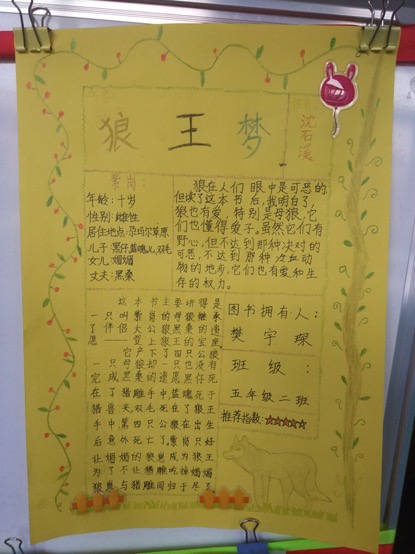 狼 王 梦
沈石溪
紫岚：
年龄：十岁
性别：雌性
居住地点：尕玛尔草原
儿子：黑仔蓝魂儿双毛
女儿：媚媚
丈夫：黑桑
狼在人们眼中是可恶的
但读了这本书后，我明白了
狼也有爱，特别是母狼，它
们也懂得爱子。虽然它们有
野心，但不达到那种决对的
可恶，不达到那种冷血动
物的地步，它们也有爱和生
存的权力。
这本书主要讲得是
一只叫紫岚的狼继承
了伴侣大公狼黑桑的遗
愿——登上狼王的宝座
它产下了四只公狼
一只母狼却一只也没有
完成黑桑的遗愿黑仔死
在了猎雕手中蓝魂儿死于
猎兽夹双毛死在了狼王
手中第四只公狼在出生
后意外死亡了，紫岚只好
让媚媚的狼崽成为狼王
为了不让猎雕吃掉媚媚
狼崽与猎雕同归于尽了。
图书拥有人：
樊宇琛
班级：
五年级二班
推荐指数：☆☆☆☆☆